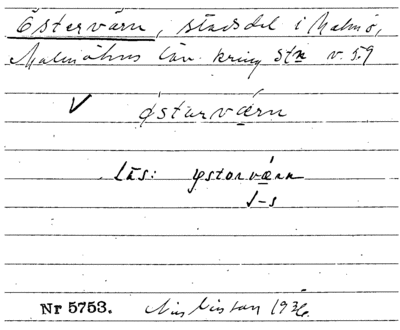 Östervärn, stadsdel i Malmö,
Malmöhus län. kring Stn v. 59
V östarværn
Läs: østorværn
s-s
Nr 5753. Nils Nilsson 1936.